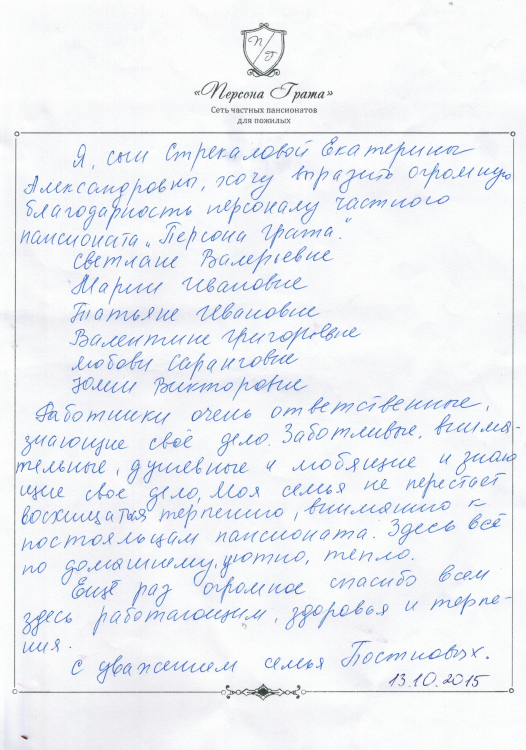 П Г
«Персона Грата»
Сеть частных пансионатов
для пожилых
Я, сын Стрекаловой Екатерины
Александровны, хочу выразить огромную
благодарность персоналу частного
пансионата „Персона Грата."
Светлане Валерьевне
Марии Ивановне
Татьяне Ивановне
Валентине Григорьевне
Любови Саранговне
Юлии Викторовне
Работники очень ответственные,
знающие своё дело. Заботливые, внима-
тельные, душевные и любящие и знаю
щие свое дело, Моя семья не перестаёт
восхищаться терпению, вниманию к
постояльцам пансионата. Здесь всё
по домашнему, уютно, тепло.
Ещё раз огромное спасибо всем
здесь работающим, здоровья и терпе-
ния.
С уважением семья Постновых.
13.10.2015